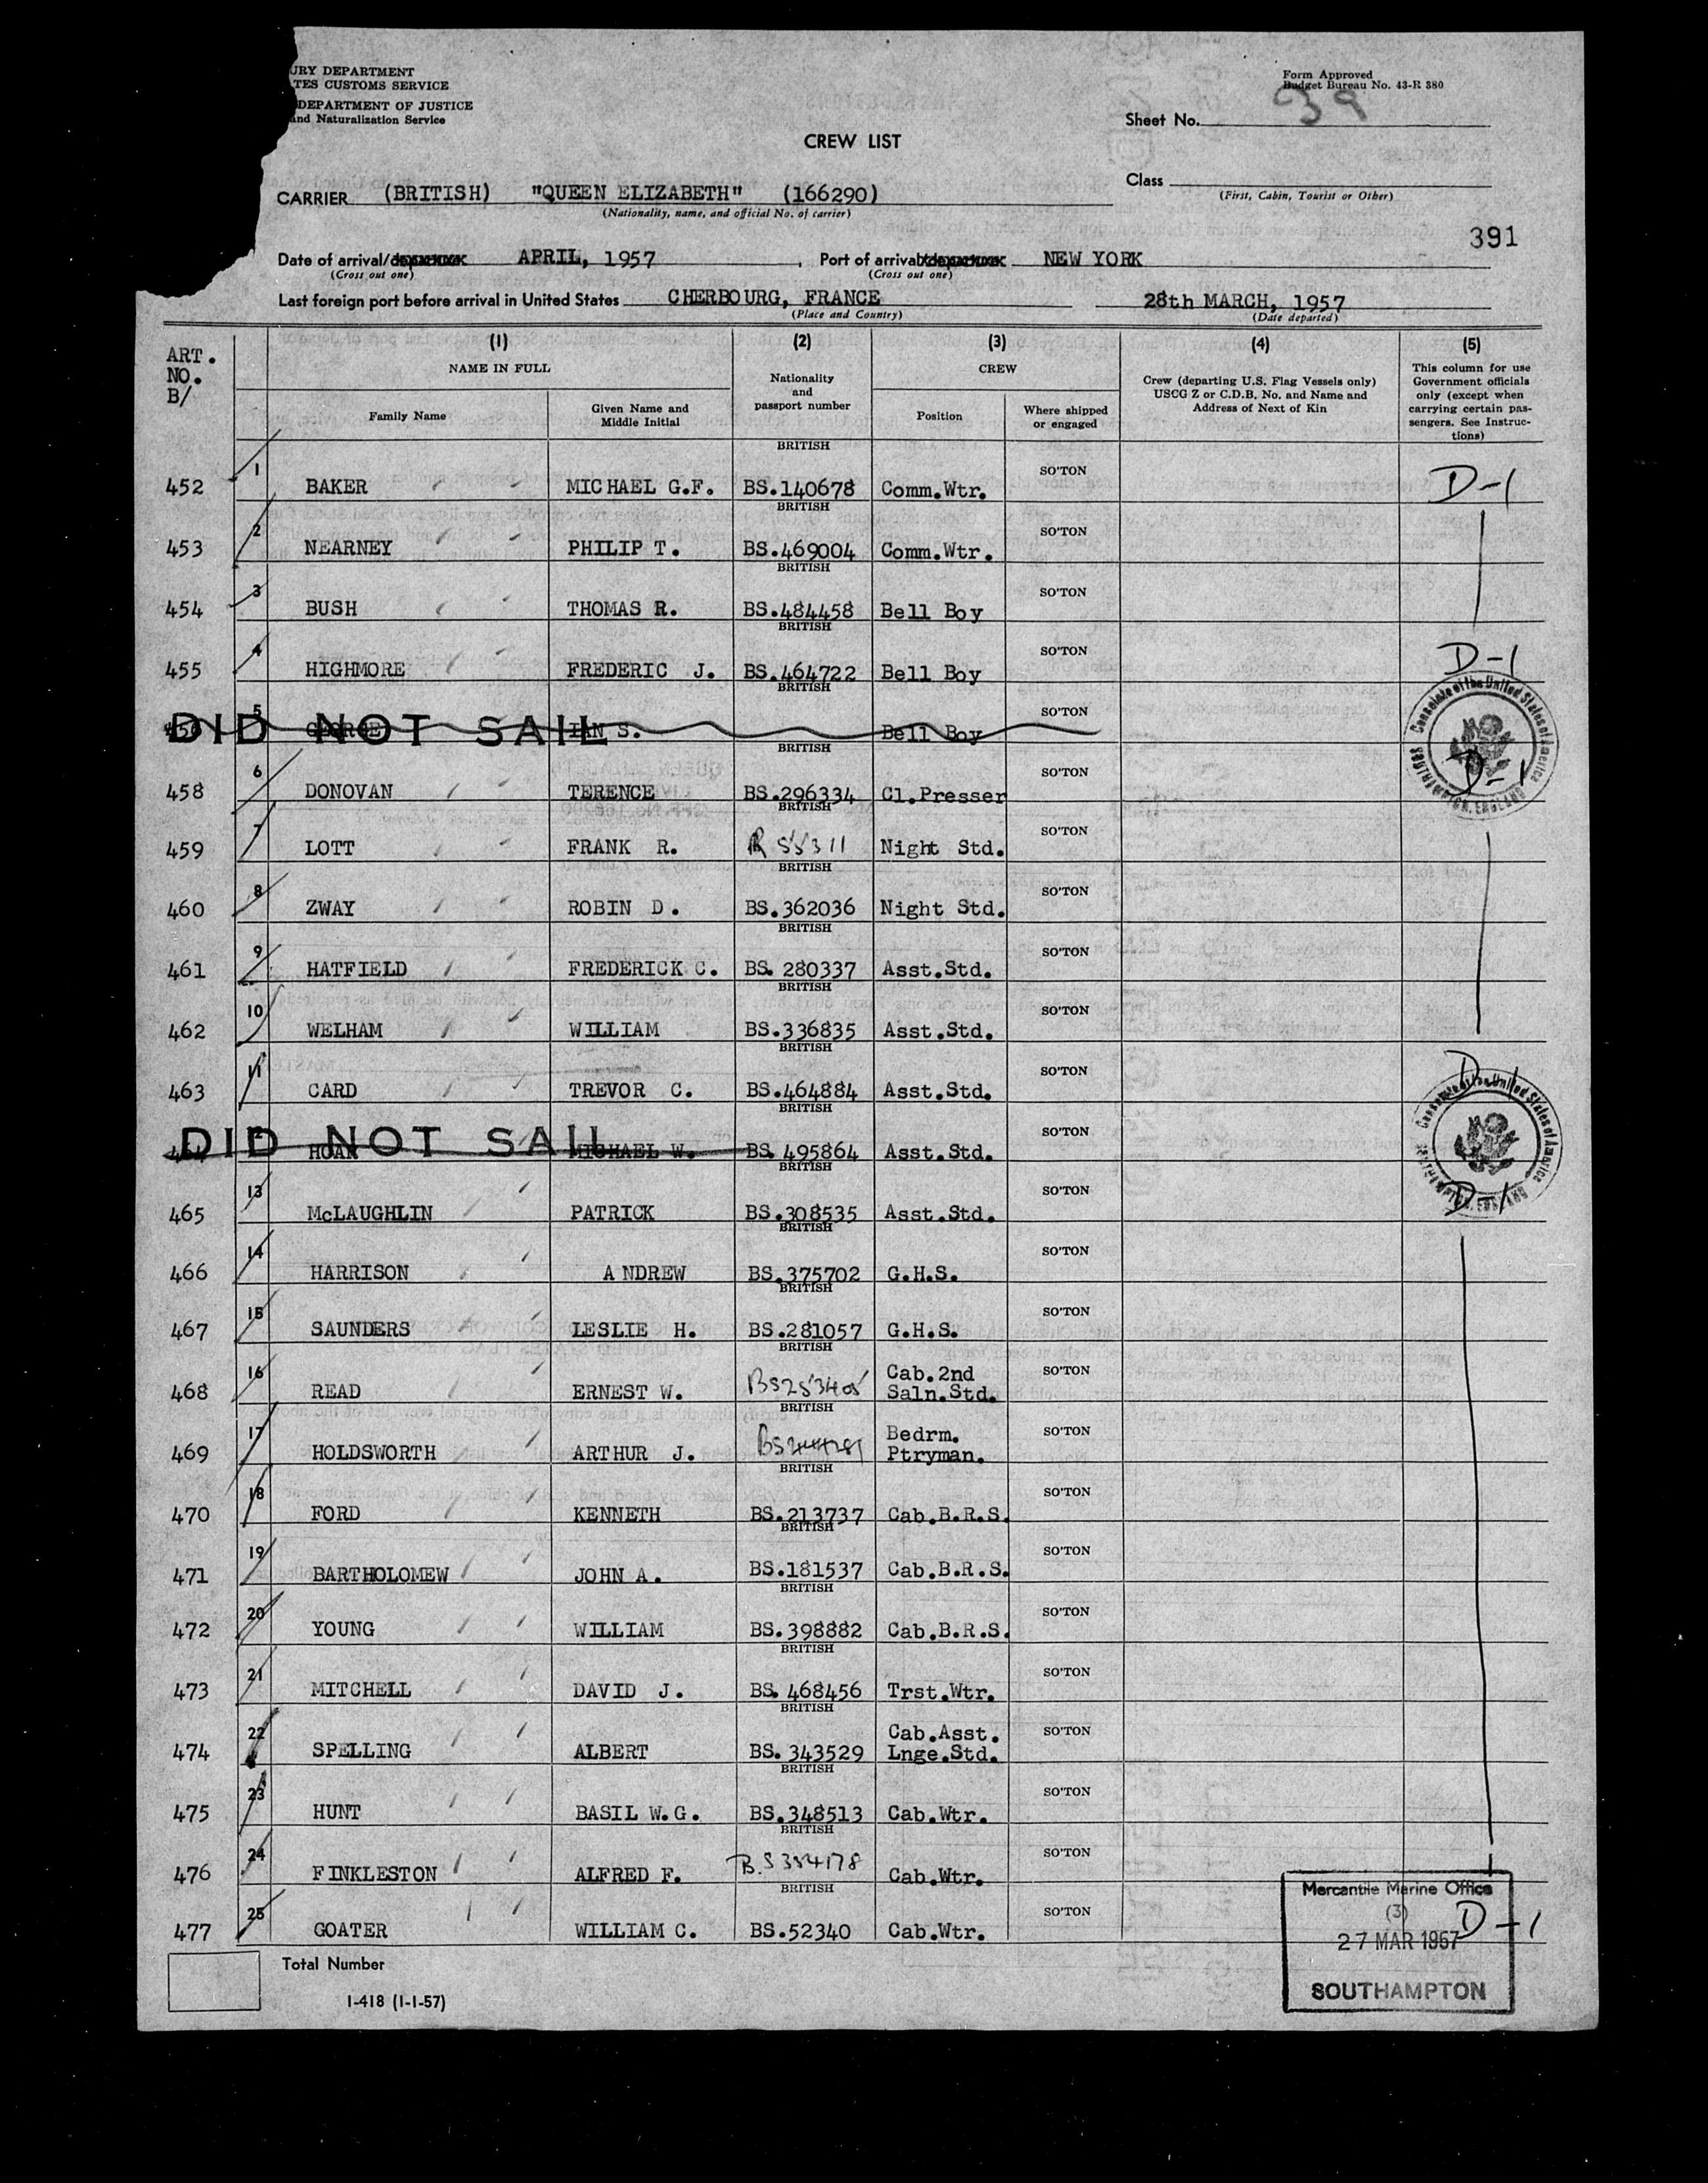 URY DEPARTMENT
TES CUSTOMS SERVICE
DEPARTMENT OF JUSTICE
and Naturalization Service
Form Approved
Budget Bureau No. 43-R 380
Sheet No. 39
CREW LIST
Class
(First, Cabin, Tourist or Other)
CARRIER (BRITISH) "QUEEN ELIZABETH" (166290)
(Nationality, name, and official No. of carrier)
391
Date of arrival/ APRIL, 1957 Port of arrival NEW YORK
(Cross out one) (Cross out one)
Last foreign port before arrival in United States CHERBOURG, FRANCE 28th MARCH, 1957
(Place and Country) (Date departed)
ART. NO. B/
(1) NAME IN FULL
Family Name
Given Name and Middle Initial
(2) Nationality and passport number
(3) CREW
Position
Where shipped or engaged
(4) Crew (departing U.S. Flag Vessels only) USCG Z or C.D.B. No. and Name and Address of Next of Kin
(5) This column for use Government officials only (except when carrying certain passengers. See Instructions)
452 1 BAKER MICHAEL G.F. BRITISH BS.140678 Comm.Wtr. SO'TON D-1
453 2 NEARNEY PHILIP T. BRITISH BS.469004 Comm.Wtr. SO'TON
454 3 BUSH THOMAS R. BRITISH BS.484458 Bell Boy SO'TON
455 4 HIGHMORE FREDERIC J. BRITISH BS.464722 Bell Boy SO'TON D-1
5 DID NOT SAIL IAN S. BRITISH Bell Boy SO'TON
Consulate of the United States of America
SOUTHAMPTON, ENGLAND
458 6 DONOVAN TERENCE BRITISH BS.296334 Cl.Presser SO'TON D-1
459 7 LOTT FRANK R. BRITISH R 55311 Night Std. SO'TON
460 8 ZWAY ROBIN D. BRITISH BS.362036 Night Std. SO'TON
461 9 HATFIELD FREDERICK C. BRITISH BS. 280337 Asst.Std. SO'TON
462 10 WELHAM WILLIAM BRITISH BS.336835 Asst.Std. SO'TON
463 11 CARD TREVOR C. BRITISH BS.464884 Asst.Std. SO'TON D-1
DID NOT SAIL HOAR MICHAEL W. BRITISH BS. 495864 Asst.Std. SO'TON
Consulate of the United States of America
SOUTHAMPTON, ENGLAND
465 13 McLAUGHLIN PATRICK BRITISH BS.308535 Asst.Std. SO'TON D-1
466 14 HARRISON ANDREW BRITISH BS.375702 G.H.S. SO'TON
467 15 SAUNDERS LESLIE H. BRITISH BS.281057 G.H.S. SO'TON
468 16 READ ERNEST W. BRITISH BS253405 Cab.2nd Saln.Std. SO'TON
469 17 HOLDSWORTH ARTHUR J. BRITISH Bedrm. Ptryman. SO'TON
470 18 FORD KENNETH BRITISH BS.213737 Cab.B.R.S. SO'TON
471 19 BARTHOLOMEW JOHN A. BRITISH BS.181537 Cab.B.R.S. SO'TON
472 20 YOUNG WILLIAM BRITISH BS.398882 Cab.B.R.S. SO'TON
473 21 MITCHELL DAVID J. BRITISH BS. 468456 Trst.Wtr. SO'TON
474 22 SPELLING ALBERT BRITISH BS. 343529 Cab.Asst. Lnge.Std. SO'TON
475 23 HUNT BASIL W.G. BRITISH BS.348513 Cab.Wtr. SO'TON
476 24 FINKLESTON ALFRED F. BRITISH B.S 384178 Cab.Wtr. SO'TON
477 25 GOATER WILLIAM C. BRITISH BS.52340 Cab.Wtr. SO'TON D-1
Mercantile Marine Office
(3)
27 MAR 1957
SOUTHAMPTON
Total Number
I-418 (1-1-57)